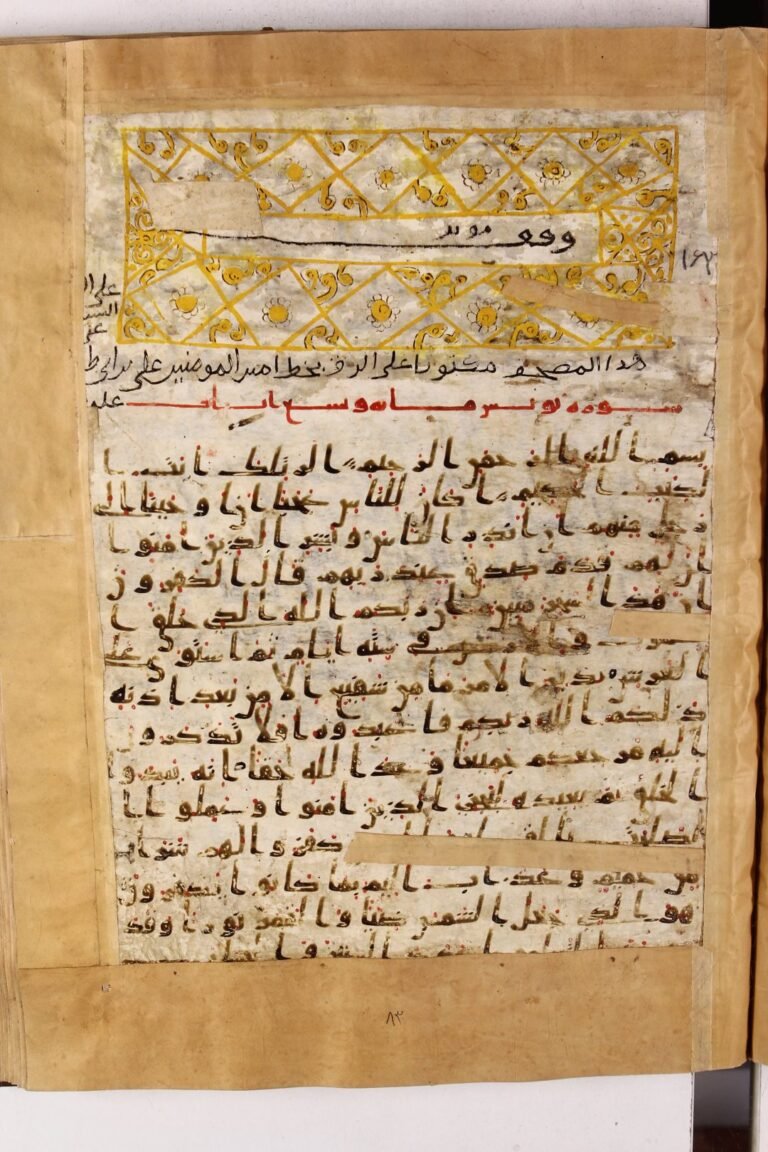 وقف موبد
١٦٣
هذا المصحف مكتوبا على الرق بخط امير المومنين على بن ابى ط
سوره يونس مايه وتسع ايات
بسم الله الرحمن الرحيم الر تلك ايت ا
لكتب الحكيم ا كان للناس عجبا ان ا وحينا الى
رجل منهم ان انذر الناس وبشر الذين امنوا ا
ن لهم قدم صدق عند ربهم قال الكفرون
ان هذا لسحر مبين ان ربكم الله الذى خلق ا
والارض فى سته ايام ثم استوى على
العرش يدبر الامر ما من شفيع الا من بعد اذنه
ذلكم الله ربكم فاعبدوه افلا تذكرون
اليه مرجعكم جميعا وعد الله حقا انه يبدوا
الخلق ثم يعيده ليجزى الذين امنوا وعملوا ا
لصلحت كفروا لهم شراب
من حميم وعذاب اليم بما كانوا يكفرون
هو الذى جعل الشمس ضيا والقمر نورا وقد
٨٣